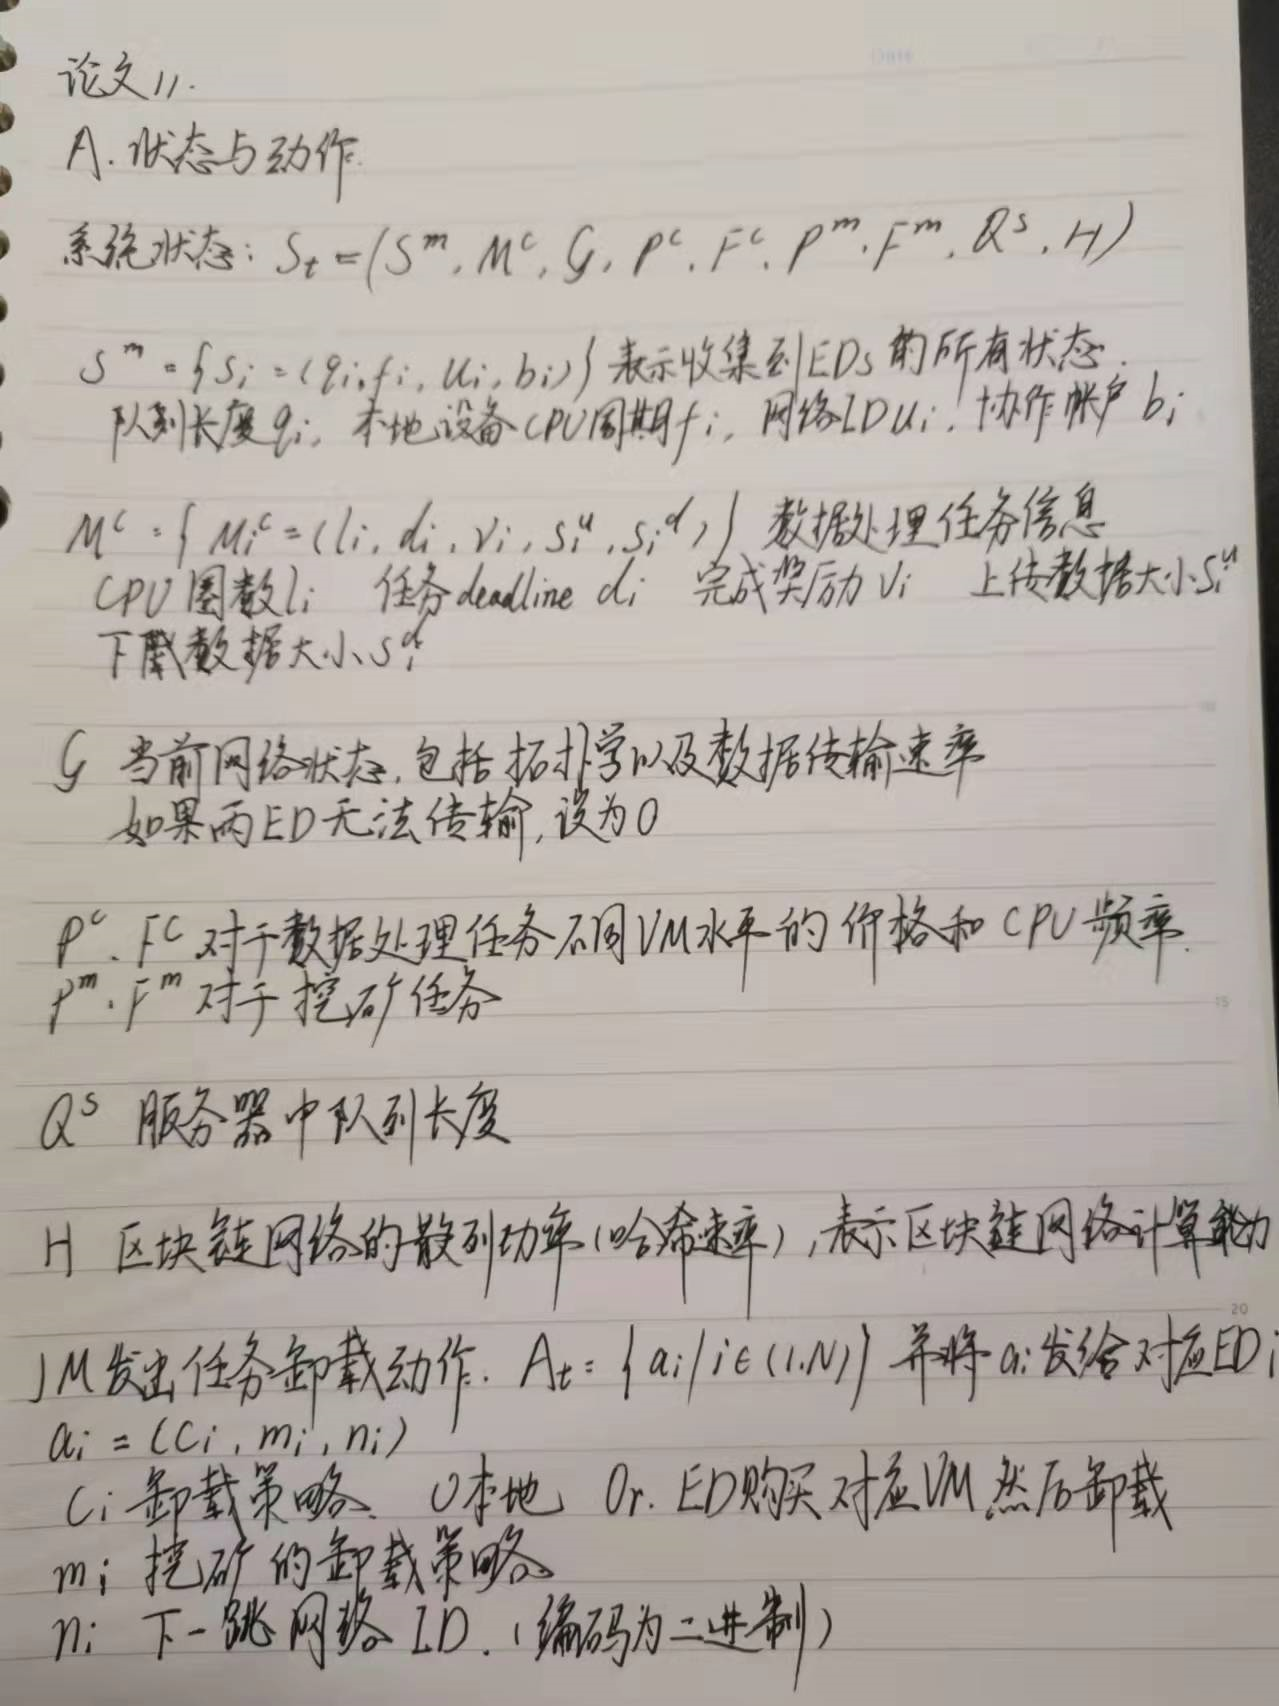 论文11.
A. 状态与动作.
系统状态: St = (S^m, M^c, G, P^c, F^c, P^m, F^m, Q^s, H)
S^m = {Si = (qi, fi, ui, bi)} 表示收集到EDs的所有状态.
队列长度qi, 本地设备CPU周期fi, 网络ID ui, 协作帐户 bi
M^c = { Mi^c = (li, di, vi, si^u, si^d, ) } 数据处理任务信息
CPU圈数li 任务deadline di 完成奖励 vi 上传数据大小si^u
下载数据大小si^d
G 当前网络状态, 包括拓扑学以及数据传输速率
如果两ED无法传输, 设为0
P^c、F^c 对于数据处理任务不同VM水平的价格和CPU频率.
P^m、F^m 对于挖矿任务
Q^s 服务器中队列长度
H 区块链网络的散列功率(哈希速率), 表示区块链网络计算能力
JM发出任务卸载动作. At = {ai | i∈(1,N)} 并将ai发给对应EDi
ai = (ci, mi, ni)
Ci 卸载策略、 0本地 Or. ED购买对应VM然后卸载
mi 挖矿的卸载策略
ni 下一跳网络ID. (编码为二进制)